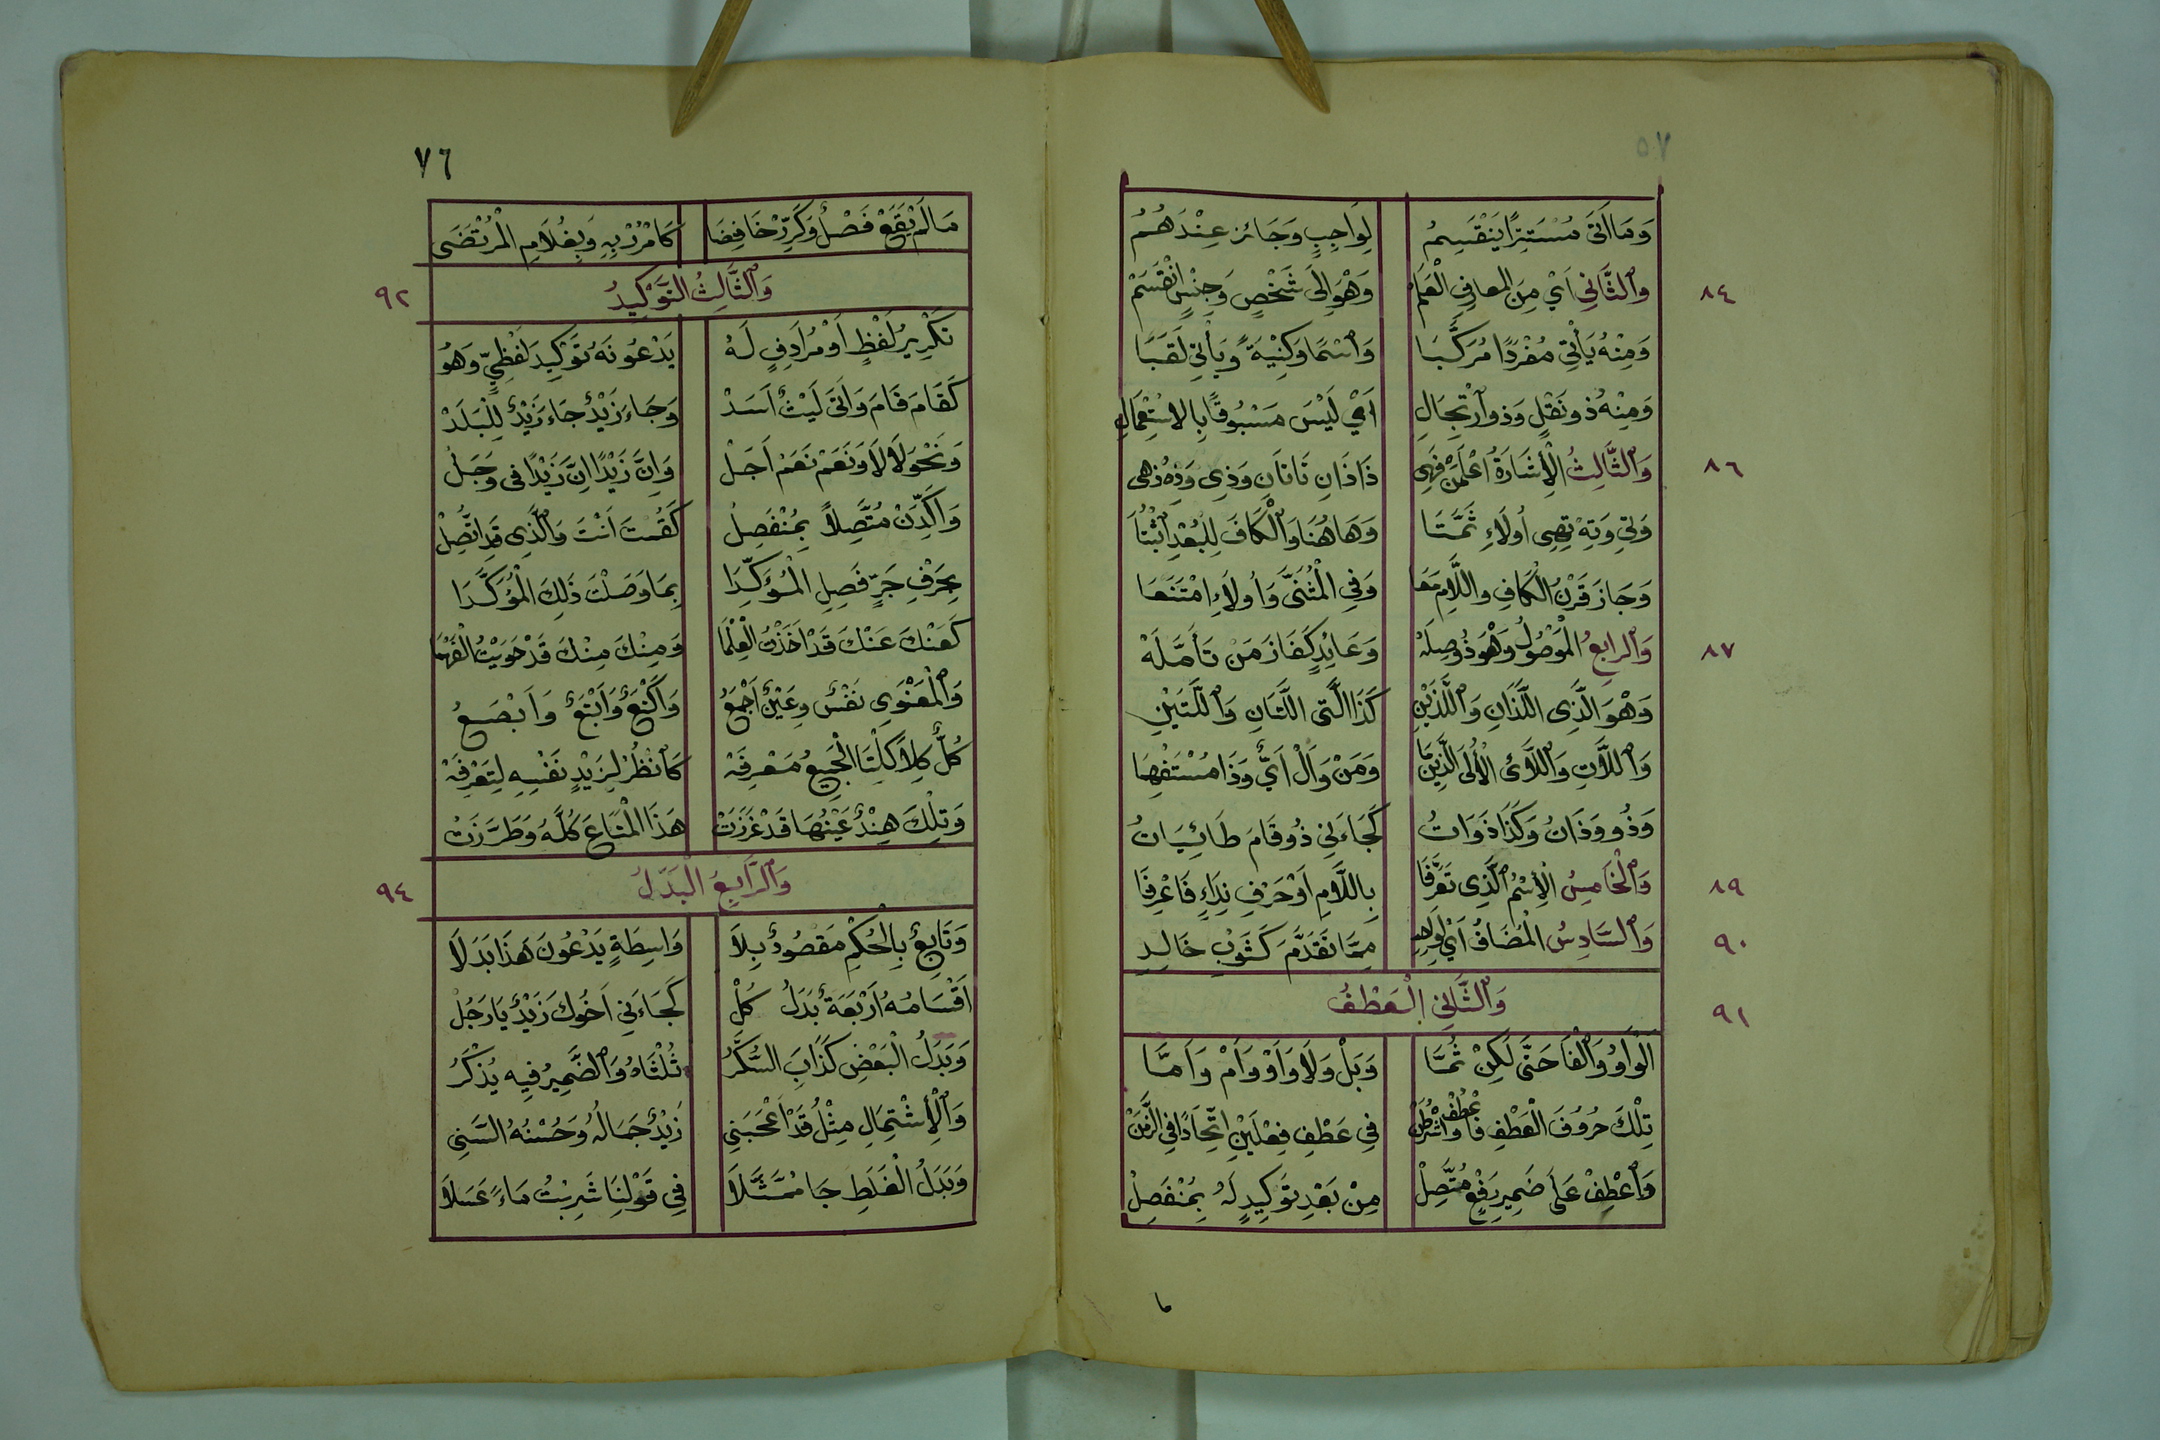 ٥٧
وَمَا اَتَى مُسْتَتِرًا يَنْقَسِمُ لِوَاجِبٍ وَجَائِزٍ عِنْدَهُمُ
٨٤ وَالثَّانِي اَيْ مِنَ الْمعارِفِ الْعَلَمْ وَهْوَ اِلَى شَخْصٍ وَجِنْسٍ انْقَسَمْ
وَمِنْهُ يَأْتِي مُفْرَدًا مُرَكَّبَا وَاسْمًا وَكُنْيَةً وَيَأْتِي لَقَبَا
وَمِنْهُ ذو نَقْلٍ وَذو اَرْتِجَالِ اَيْ لَيْسَ مَسْبُوقًا بِالاسْتِعْمَالِ
٨٦ وَالثَّالِثُ الْإِشَارَةُ اعْلَمَنْ فَهِي ذَا ذَانِ تَا تَانِ وَذِي وَذِهْ ذهى
وَتِي وَتِهْ تِهِى اُولَاءِ ثَمَّتَا وَهَا هُنَا وَالْكَافَ لِلْبُعْدِ اثْبُتَا
وَجَازَ قَرْنُ الْكَافِ واللَّامِ مَعَا وَفِي الْمُثَنَّى وَاُولَاءِ امْتَنَعَا
٨٧ وَالرابعُ الْمَوْصُولُ وَهْوَ ذُو صِلَهْ وَعَائِدٍ كَفَازَ مَنْ تَأَمَّلَهْ
وَهْوَ الَّذِى اللَّذَانِ وَاللَّذَيْنِ كَذَا الَّتِى اللَّتَانِ وَاللَّتَيْنِ
وَاللَّاتِ وَاللَّائ الْأُلَى الَّذِينَ مَا وَمَنْ وَاَلْ اَيٌّ وَذَا مُسْتَفْهِمَا
وَذُو وَذَانُ وَكَذَا ذَوَاتُ كَجَاءَنِي ذُو قَامَ طَائِيَاتُ
٨٩ وَالْخَامِسُ الْاِسْمُ الَّذِى تَعَرَّفَا بِاللَّامِ اَوْ حَرْفِ نِدَاءٍ فَاعْرِفَا
٩٠ وَالسَّادِسُ الْمُضَافُ اَيْ لِوَاحِدِ مِمَّا تَقَدَّمَ كَثَوْبِ خَالِدِ
٩١ وَالثَّانِي الْعَطْفُ
اَلْوَاوُ وَالْفَا حَتَّى لَكِنْ ثُمَّا وَبَلْ وَلَا وَاَوْ وَاَمْ وَاَمَّا
تِلْكَ حُرُوفَ الْعَطْفِ فَاعْطِفْ وَاشْرُطَنْ فِي عَطْفِ فِعْلَيْنِ اتِّحَادًا فِي الزَّمَنْ
وَاعْطِفْ عَلَى ضَمِيرِ رَفْعٍ مُتَّصِلْ مِنْ بَعْدِ تَوْكِيدٍ لَهُ بِمُنْفَصِلْ
٧٦
مَا لَمْ يَقَعْ فَصْلٌ وَكَرِّرْ خَافِضَا كَامْرُرْ بِهِ وَبِغُلَامِ الْمُرْتَضَى
٩٢ وَالثَّالِثُ التَّوْكِيدُ
تَكْرِيرُ لَفْظٍ اَوْ مُرَادِفٍ لَهُ يَدْعُونَهُ تَوْكِيدَ لَفْظِيٍّ وَهُو
كَقَامَ قَامَ وَاَتَى لَيْثٌ اَسَدْ وَجَاءَ زَيْدٌ جَاءَ زَيْدٌ لِلْبَلَدْ
وَنَحْوُ لَا لَا وَنَعَمْ نَعَمْ اَجَلْ وَاِنَّ زَيْدًا اِنَّ زَيْدًا فى وَجَلْ
وَاَكِّدَنْ مُتَّصِلًا بِمُنْفَصِلْ كَقُمْتَ اَنْتَ وَالَّذِى قَدِ اتَّصِلْ
بِحَرْفِ جَرٍّ فَصِلِ الْمُؤَكِّدَا بِمَا وَصَلْتَ ذَلِكَ الْمُؤَكَّدَا
كَعَنْكَ عَنْكَ قَدْ اَخَذْتُ الْعِلْمَا وَمِنْكَ مِنْكَ قَدْ حَوَيْتُ الْفَهْمَا
وَالْمَعْنَوِى نَفْسٌ وعَيْنٌ اَجْمَعُ وَاَكْتَعٌ وَاَبْتَعٌ وَاَبْصَعُ
كُلٌّ كِلَا كِلْتَا الْجَمِيعُ مَعْرِفَهْ كَانْظُرْ لِزَيْدٍ نَفْسِهِ لِتَعْرِفَهْ
وَتِلْكَ هِنْدٌ عَيْنُهَا قَدْ غَرَزَتْ هَذَا الْمَتَاعَ كُلَّهُ وَطَرَّزَتْ
٩٤ وَالرَّابِعُ الْبَدَلُ
وَتَابِعٌ بِالْحُكْمِ مَقْصُودٌ بِلَا وَاسِطَةٍ يَدْعُونَ هَذَا بَدَلَا
اَقْسَامُهُ اَرْبَعَةٌ بَدَلُ كُلْ كَجَاءَنِي اَخُوكَ زَيْدٌ يَا رَجُلْ
وَبَدَلُ الْبَعْضِ كَذَابَ السُّكَّرُ ثُلْثَاهُ وَالضَّمِيرُ فِيهِ يُذْكَرُ
وَالْاِشْتِمَالِ مِثْلُ قَدْ اَعْجَبَنِي زَيْدٌ جَمَالُهُ وَحُسْنُهُ السَّنِي
وَبَدَلُ الْغَلَطِ جَا مُمَثَّلَا فِي قَوْلِنَا شَرِبْتُ مَاءً عَسَلَا